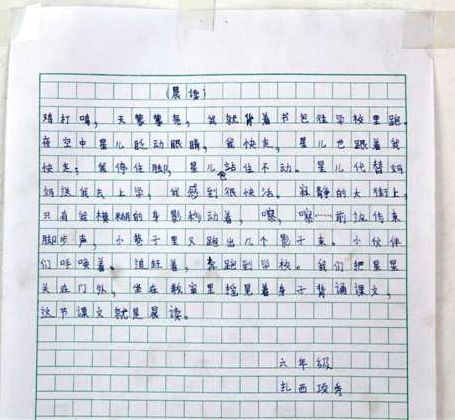 (晨读)
鸡打鸣, 天黧黧亮, 我就背着书包往学校里跑。
夜空中星儿眨动眼睛, 我快走, 星儿也跟着我
快走; 我停住脚, 星儿站住不动。星儿代替妈
妈送我去上学, 我感到很快活。寂静的大街上,
只有我模糊的身影移动着, 嚓, 嚓……前边传来
脚步声, 小巷子里又跑出几个影子来。小伙伴
们呼唤着、追赶着, 跑到学校。我们把星星
关在门外, 坐在教室里摇晃着身子背诵课文,
这节课文就是晨读。
六年级
扎西